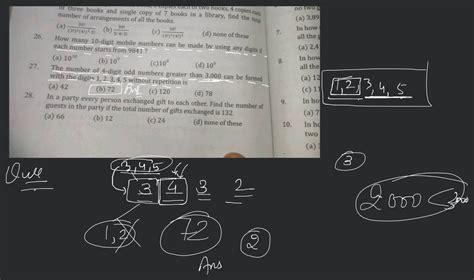 of three books and single copy of 7 books in a library, find the total
number of arrangements of all the books.
(d) none of these
26. How many 10-digit mobile numbers can be made by using any digits if
each number starts from 9841?
(a) 10¹⁰ (b) 10⁹ (c) 10⁶ (d) 10⁵
27. The number of 4-digit odd numbers greater than 3,000 can be formed
with the digits 1, 2, 3, 4, 5 without repetition is
(a) 42 (b) 72 Ans (c) 120 (d) 78
28. In a party every person exchanged gift to each other. Find the number of
guests in the party if the total number of gifts exchanged is 132.
(a) 66 (b) 12 (c) 24 (d) none of these
(a) 3,89
7. In how
all the
(a) 2,4
8. In how
all the
(a) 12
(c) 11
9. In ho
(a) 7
10. In
two
(a)
1,2 3, 4, 5
3
3,4,5
3 4 3 2
1,2
72
2
Ans
2000 <